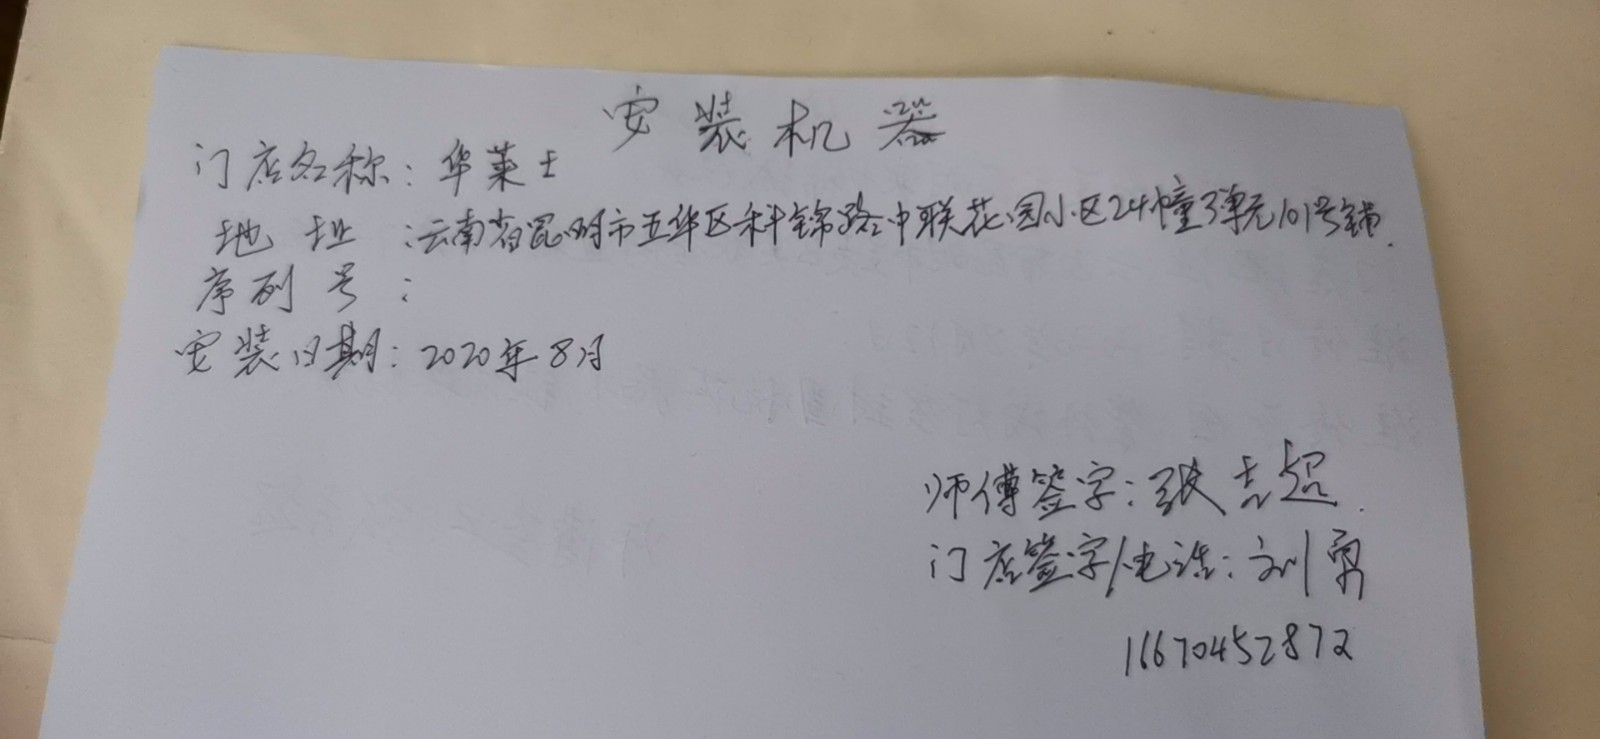 安装机器
门店名称：华莱士
地址：云南省昆明市五华区科锦路中联花园小区24幢3单元101号铺.
序列号：
安装日期：2020年8月
师傅签字：张志超.
门店签字/电话：刘勇
16670452872